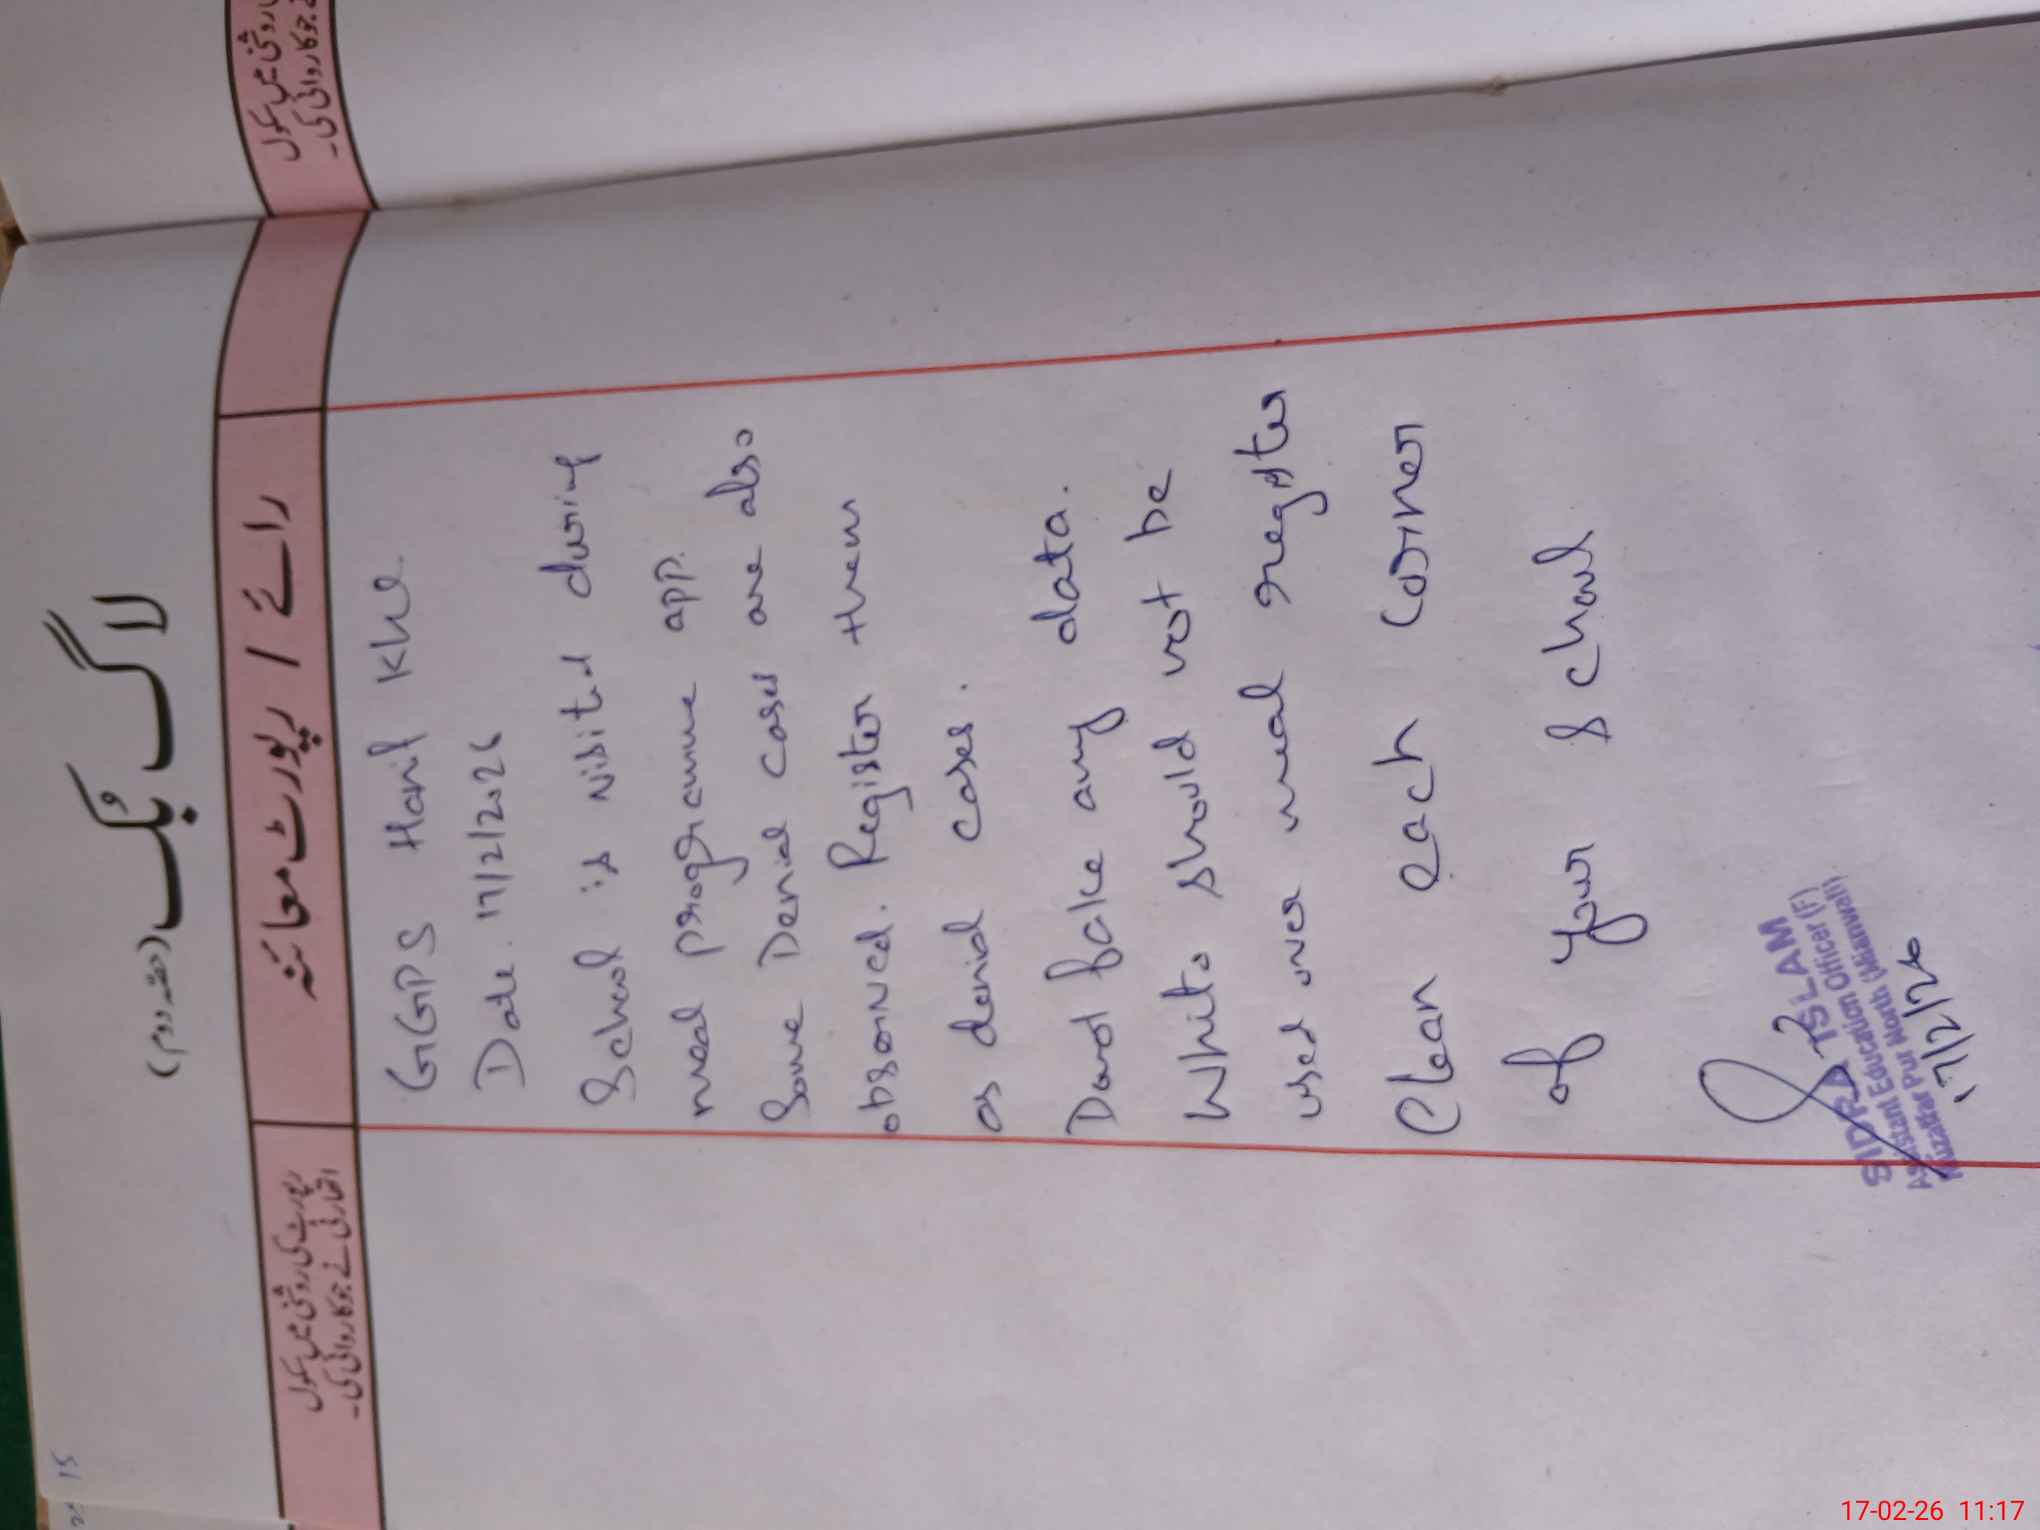 لاگ بُک (حصہ دوم)
رائے / رپورٹ معائنہ
رپورٹ کی روشنی میں سکول
اتھارٹی نے جو کاروائی کی۔
روشنی میں سکول
نے جو کاروائی کی۔
GGPS Hanif Khel
Date. 17/2/2026
School is visited during
meal programme app.
Some Denial cases are also
observed. Register them
as denial cases.
Donot fake any data.
Whito should not be
used over meal register
Clean each corner
of your school
SIDRA ISLAM
Assistant Education Officer (F)
Muzaffar Pur North (Mianwali)
17/2/26
15
17-02-26 11:17